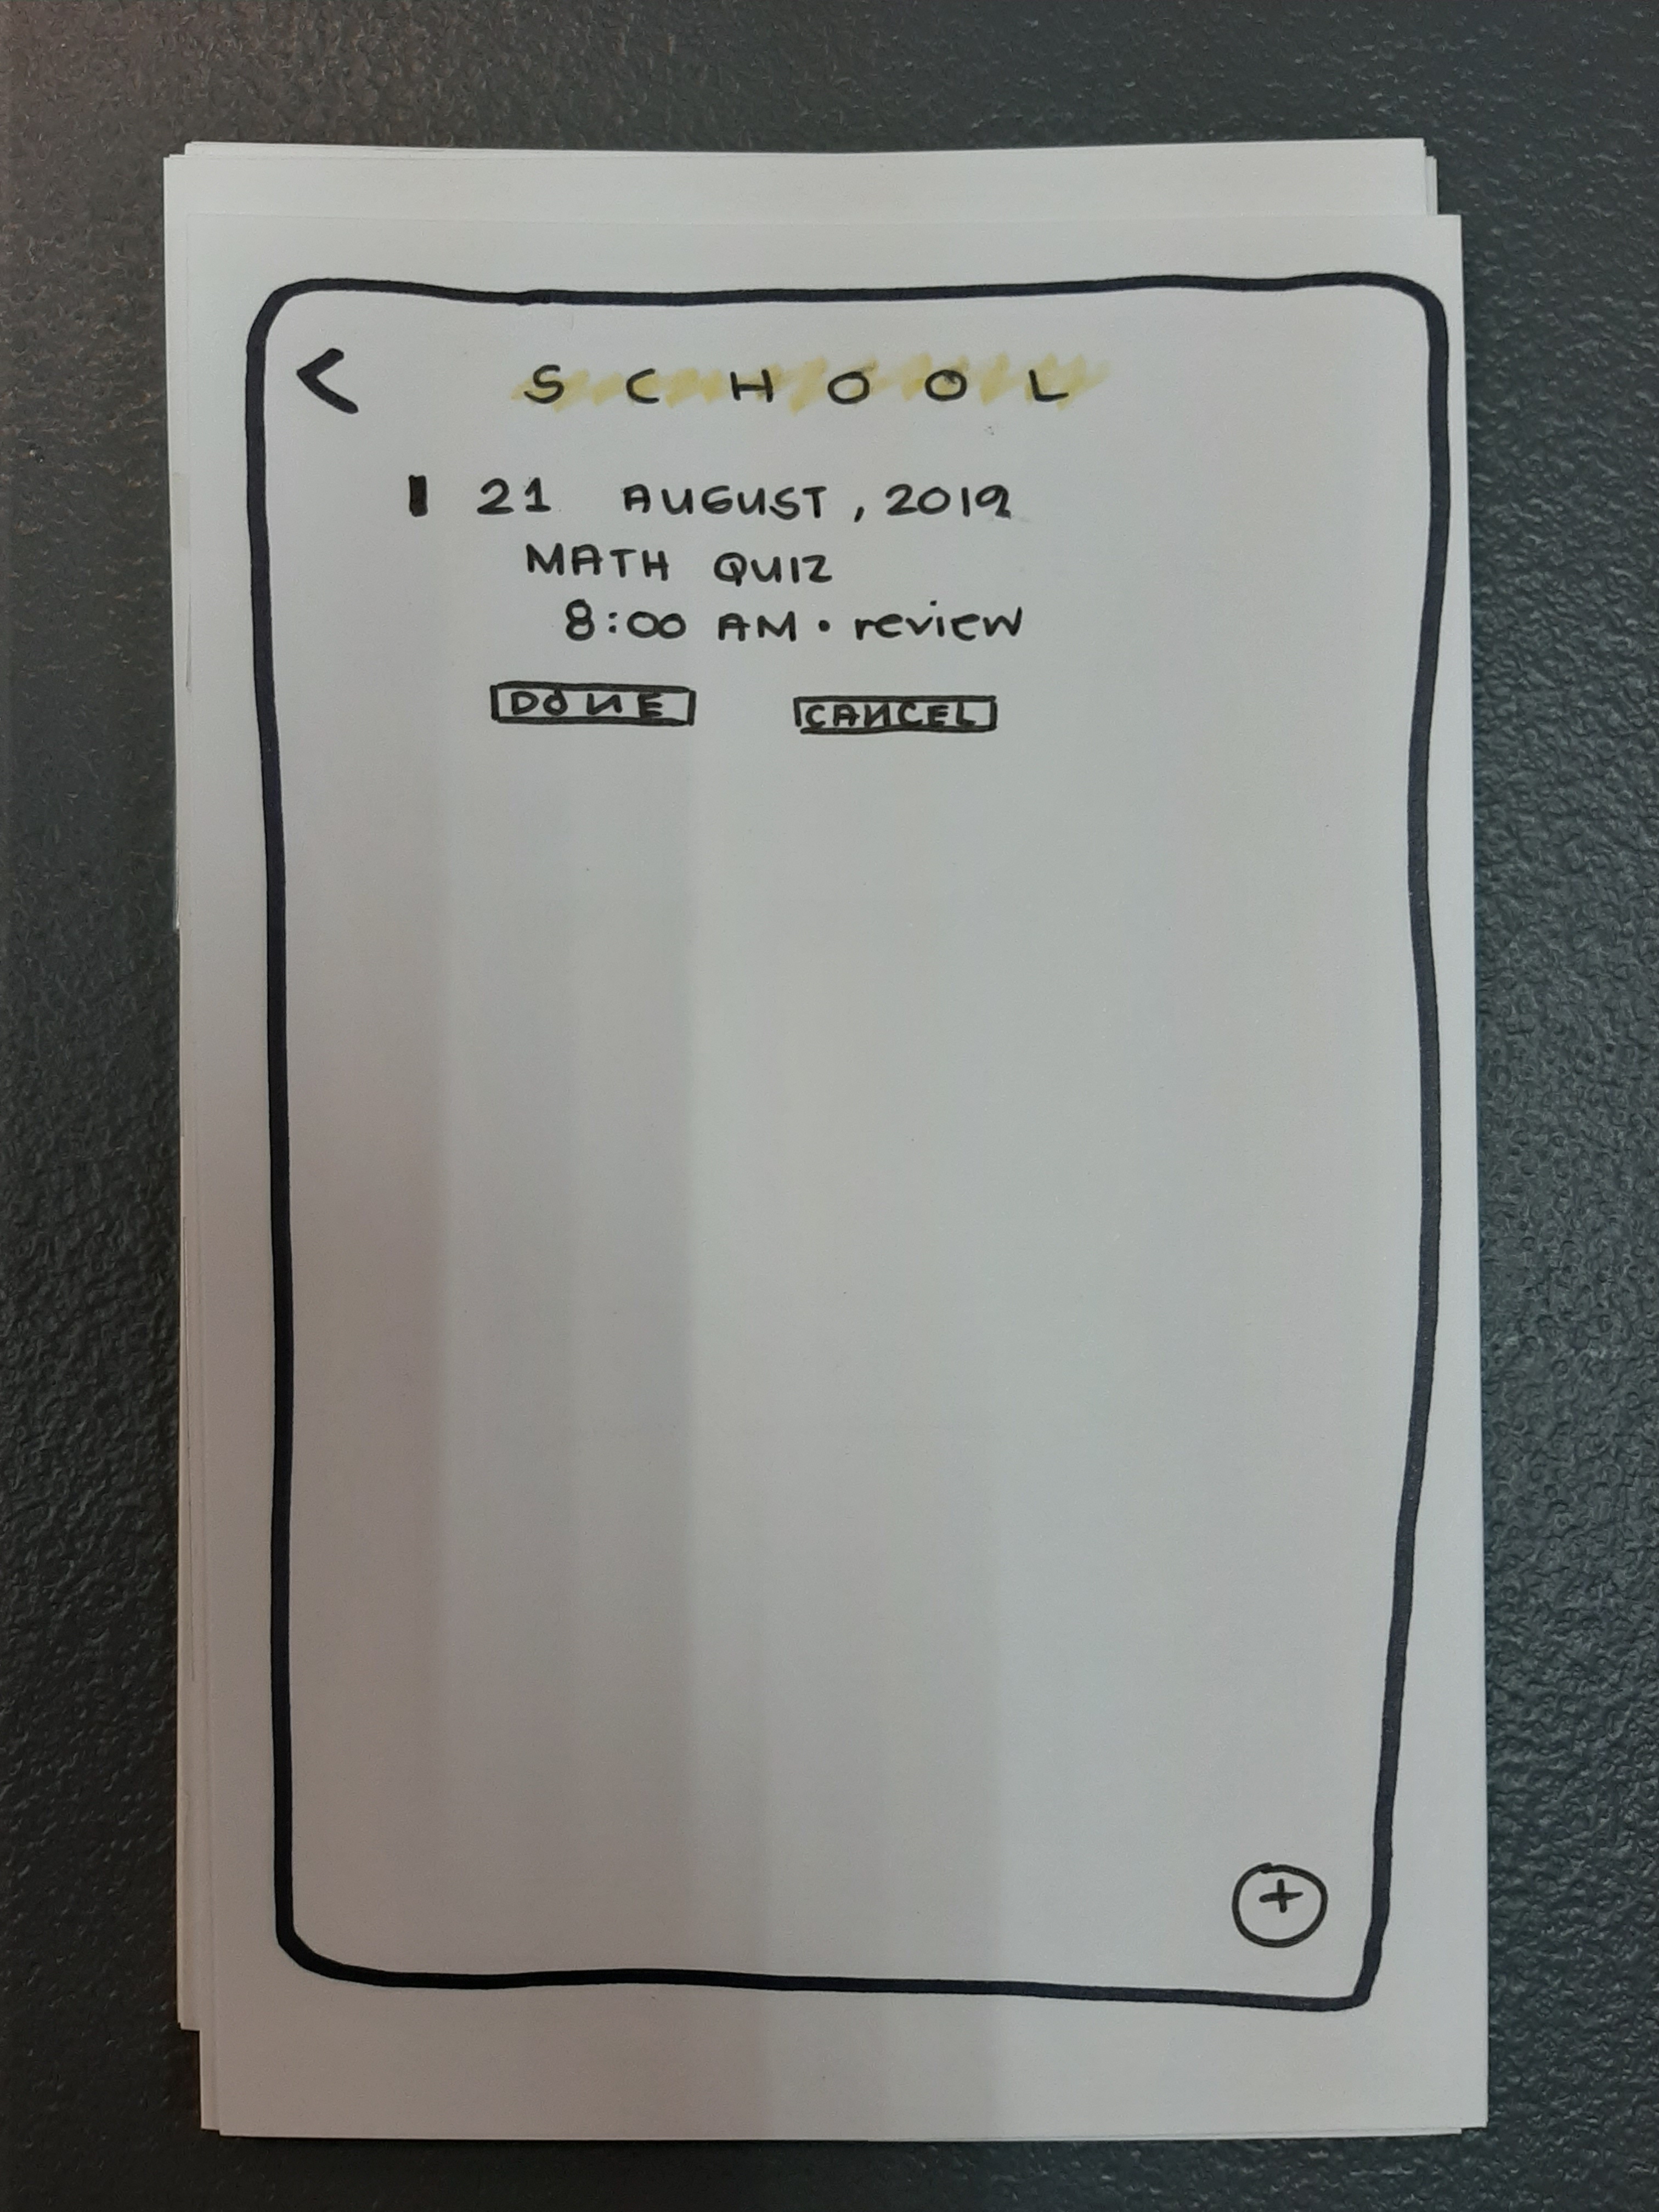 < SCHOOL
21 AUGUST, 2019
MATH QUIZ
8:00 AM • review
DONE CANCEL
+